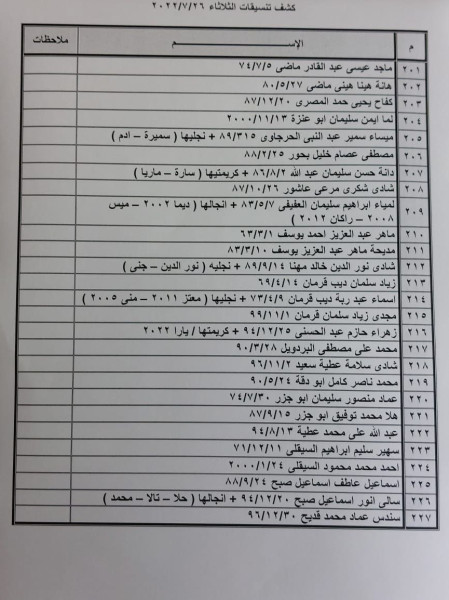 كشف تنسيقات الثلاثاء ٢٠٢٢/٧/٢٦
م الإســــم ملاحظات
٢٠١ ماجد عيسى عبد القادر ماضى ٧٤/٧/٥
٢٠٢ هانة هينا هينى ماضى ٨٠/٥/٢٧
٢٠٣ كفاح يحيى حمد المصرى ٨٧/١٢/٢٠
٢٠٤ لما ايمن سليمان ابو عنزة ٢٠٠٠/١١/١٣
٢٠٥ ميساء سمير عبد النبى الحرجاوى ٨٩/٣١٥ + نجليها ( سميرة – ادم )
٢٠٦ مصطفى عصام خليل بحور ٨٨/٢/٢٥
٢٠٧ دانة حسن سليمان عبد الله ٨٦/٨/٢ + كريمتيها ( سارة – ماريا )
٢٠٨ شادى شكرى مرعى عاشور ٨٧/١٠/٢٦
٢٠٩ لمياء ابراهيم سليمان العفيفى ٨٣/٥/٧ + انجالها ( ديما ٢٠٠٢ – ميس
٢٠٠٨ – راكان ٢٠١٢ )
٢١٠ ماهر عبد العزيز احمد يوسف ٦٣/٣/١
٢١١ مديحة ماهر عبد العزيز يوسف ٨٣/٣/١٠
٢١٢ شادى نور الدين خالد مهنا ٨٩/٩/١٤ + نجليه ( نور الدين – جنى )
٢١٣ زياد سلمان ديب قرمان ٦٩/٤/١٤
٢١٤ اسماء عبد ربة ديب قرمان ٧٣/٤/٩ + نجليها ( معتز ٢٠١١ – منى ٢٠٠٥ )
٢١٥ مجدى زياد سلمان قرمان ٩٩/١١/١
٢١٦ زهراء حازم عبد الحسنى ٩٤/١٢/٢٥ + كريمتها / يارا ٢٠٢٢
٢١٧ محمد على مصطفى البردويل ٩٠/٣/٢٨
٢١٨ شادى سلامة عطية سعيد ٩٦/١١/٢
٢١٩ محمد ناصر كامل ابو دقة ٩٠/٥/٢٤
٢٢٠ عماد منصور سليمان ابو جزر ٧٤/٧/٣٠
٢٢١ هلا محمد توفيق ابو جزر ٨٧/٩/١٥
٢٢٢ عبد الله على محمد عطية ٩٤/٨/١٣
٢٢٣ سهير سليم ابراهيم السيقلى ٧١/١٢/١١
٢٢٤ احمد محمد محمود السيقلى ٢٠٠٠/١/٢٤
٢٢٥ اسماعيل عاطف اسماعيل صبح ٨٨/٩/٢٤
٢٢٦ سالى انور اسماعيل صبح ٩٤/١٢/٢٠ + انجالها ( حلا – تالا – محمد )
٢٢٧ سندس عماد محمد قديح ٩٦/١٢/٣٠